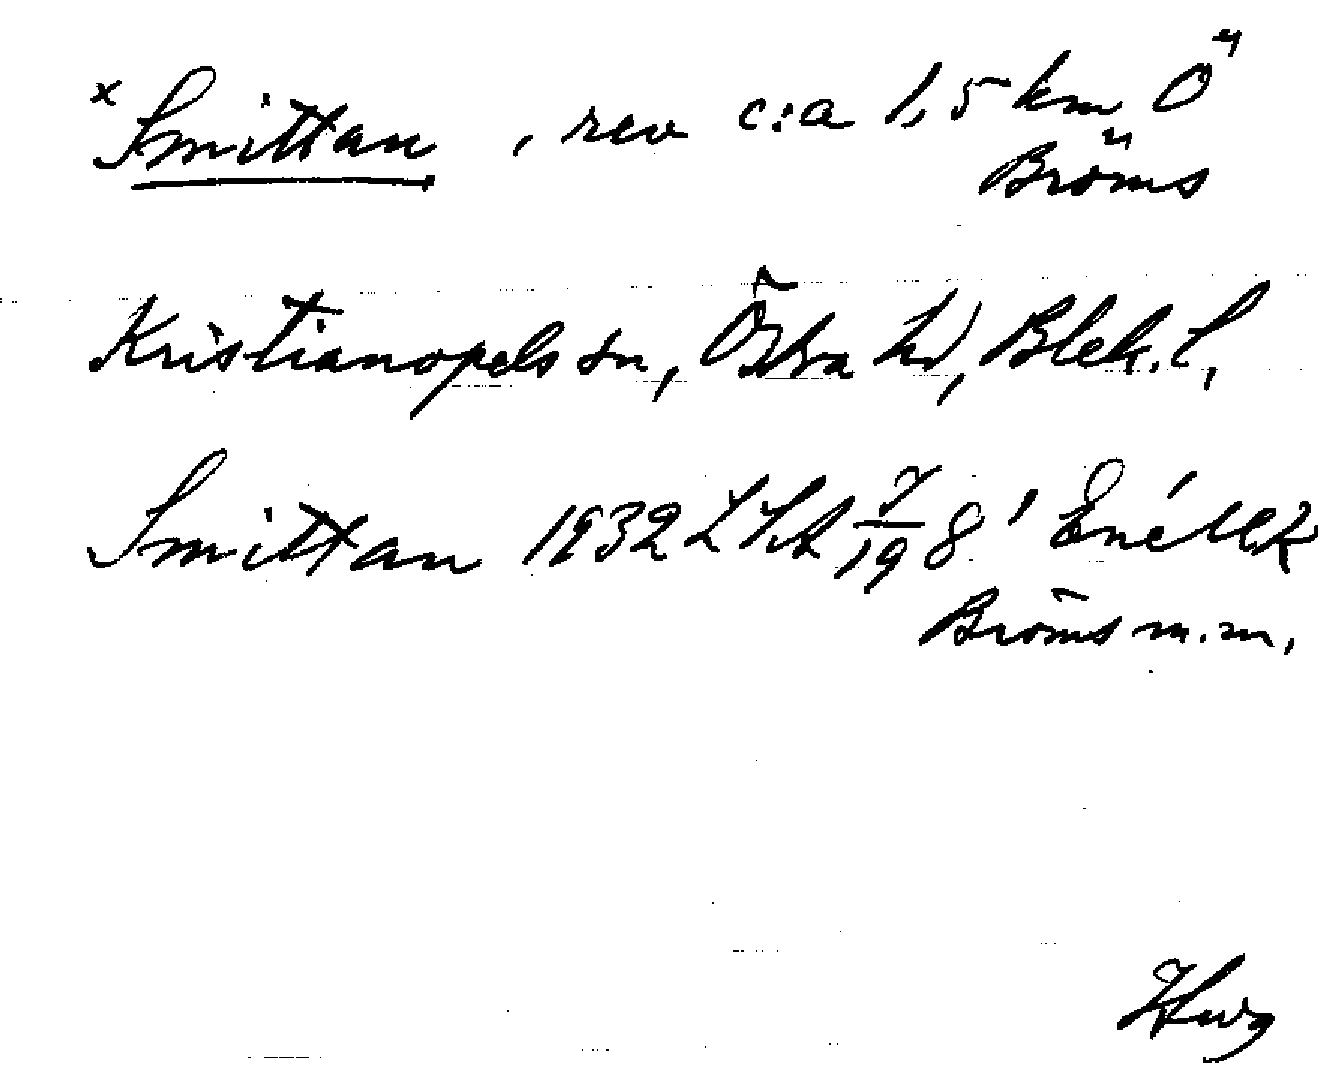 x Smittan , rev c:a 1,5 km Ö
Bröms
Kristianopels sn, Östra hd, Blek. l,
Smittan 1932 7/19 8'
Bröms m.m.